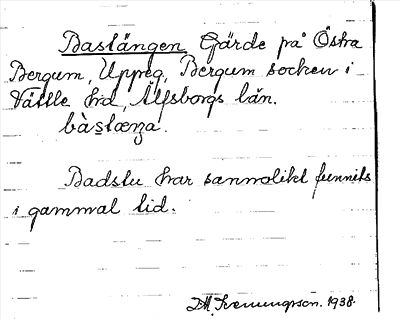 Bastängen Gärde på Östra
Bergum, Uppeg, Bergum socken i
Vättle hd, Älfsborgs län.
bàstæŋa.
Badstu har sannolikt funnits
i gammal tid.
1938.